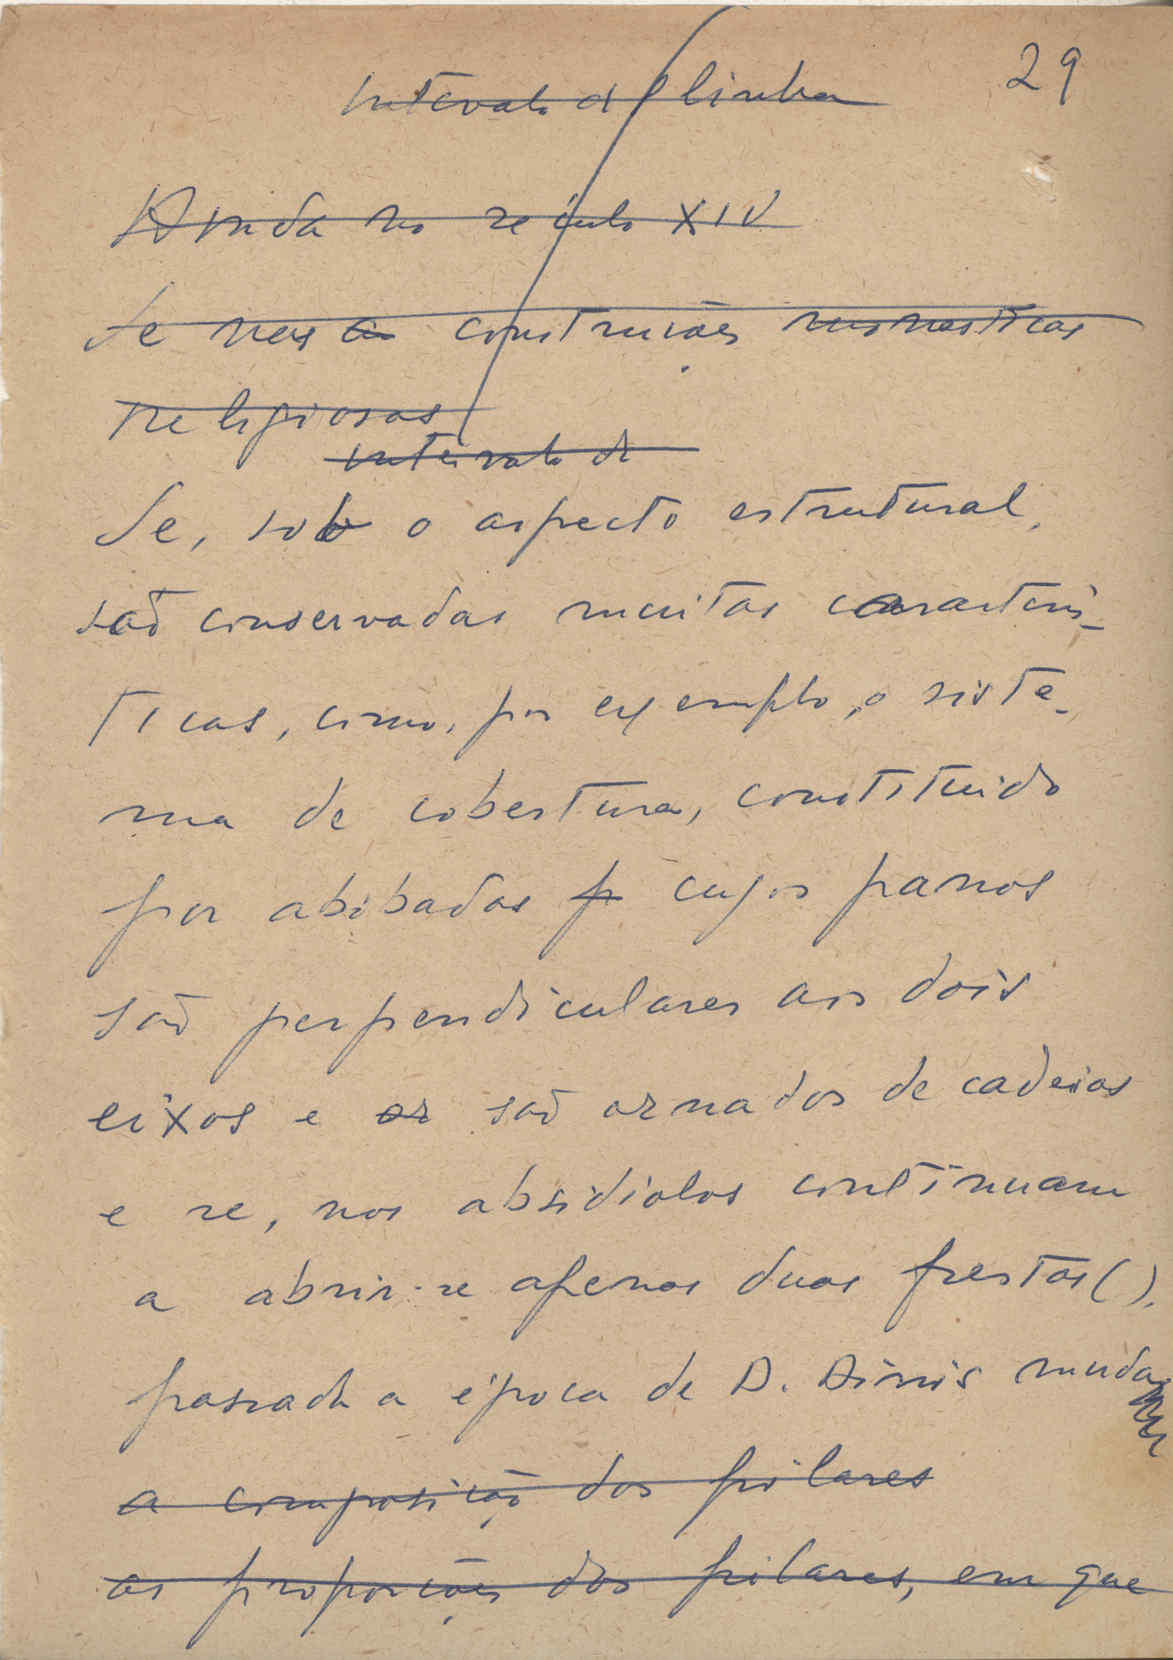 29
Intervalo de linha
Ainda no século XIV
Se nas construções monasticas
religiosas
intervalo de
Se, sob o aspecto estrutural,
são conservadas muitas caracterís-
ticas, como, por exemplo, o siste-
ma de cobertura, constituido
por abóbadas p cujos panos
são perpendiculares aos dois
eixos e or são ornados de cadeias
e se, nos absidiolos continuam
a abrir-se apenas duas frestas().
passada a época de D. Dinis muda
a composição dos pilares
as proporções dos pilares, em que